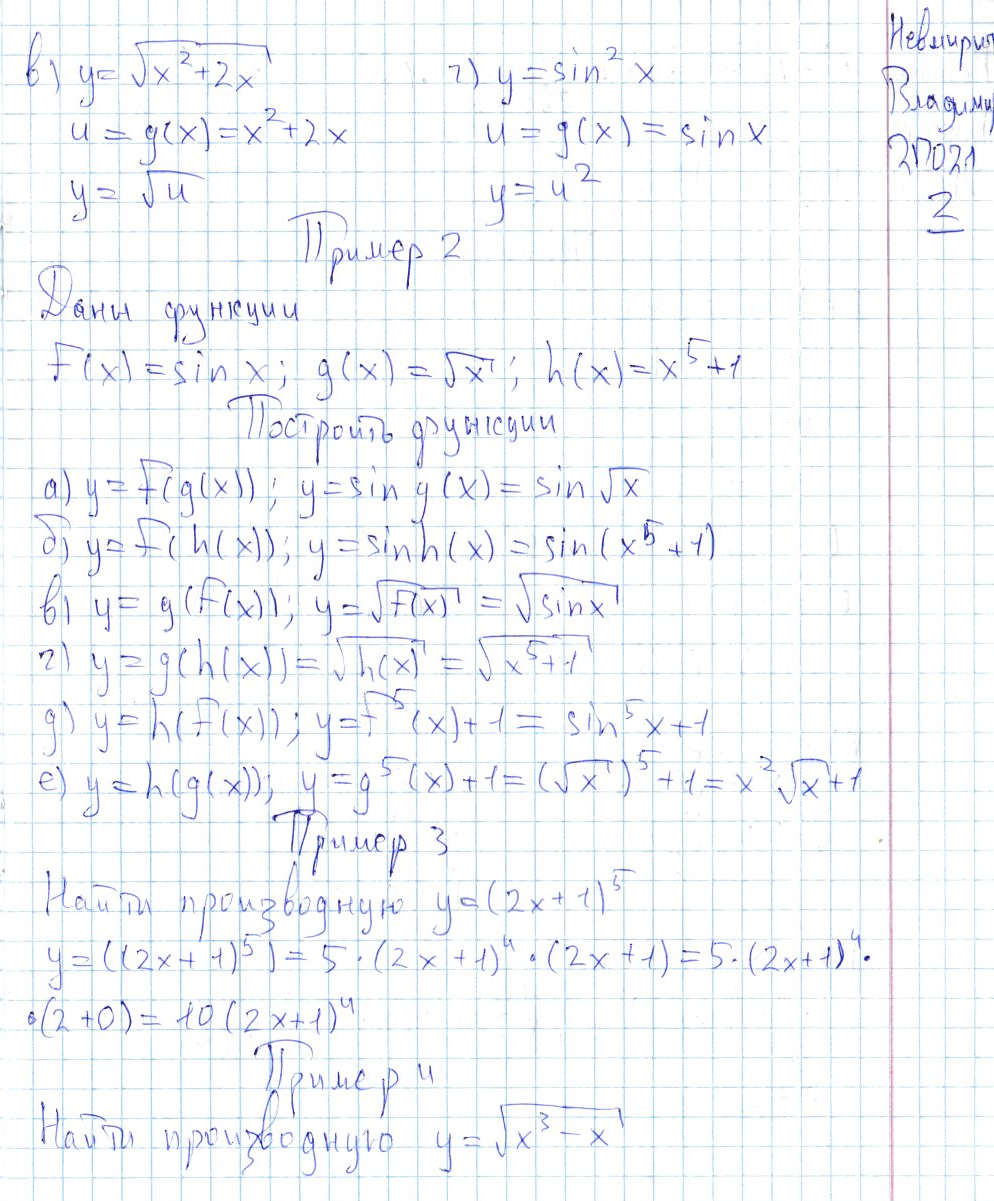 в) y = √(x² + 2x)   г) y = sin² x
u = g(x) = x² + 2x   u = g(x) = sin x
y = √u   y = u²
Невмирит
Владимир
2П021
2
Пример 2
Даны функции
f(x) = sin x; g(x) = √x; h(x) = x⁵ + 1
Построить функции
а) y = f(g(x)); y = sin g(x) = sin √x
б) y = f(h(x)); y = sin h(x) = sin(x⁵ + 1)
в) y = g(f(x)); y = √f(x) = √(sin x)
г) y = g(h(x)) = √h(x) = √(x⁵ + 1)
д) y = h(f(x)); y = f⁵(x) + 1 = sin⁵ x + 1
е) y = h(g(x)); y = g⁵(x) + 1 = (√x)⁵ + 1 = x²√x + 1
Пример 3
Найти производную y = (2x + 1)⁵
y = ((2x + 1)⁵) = 5 · (2x + 1)⁴ · (2x + 1) = 5 · (2x + 1)⁴ ·
· (2 + 0) = 10(2x + 1)⁴
Пример 4
Найти производную y = √(x³ − x)